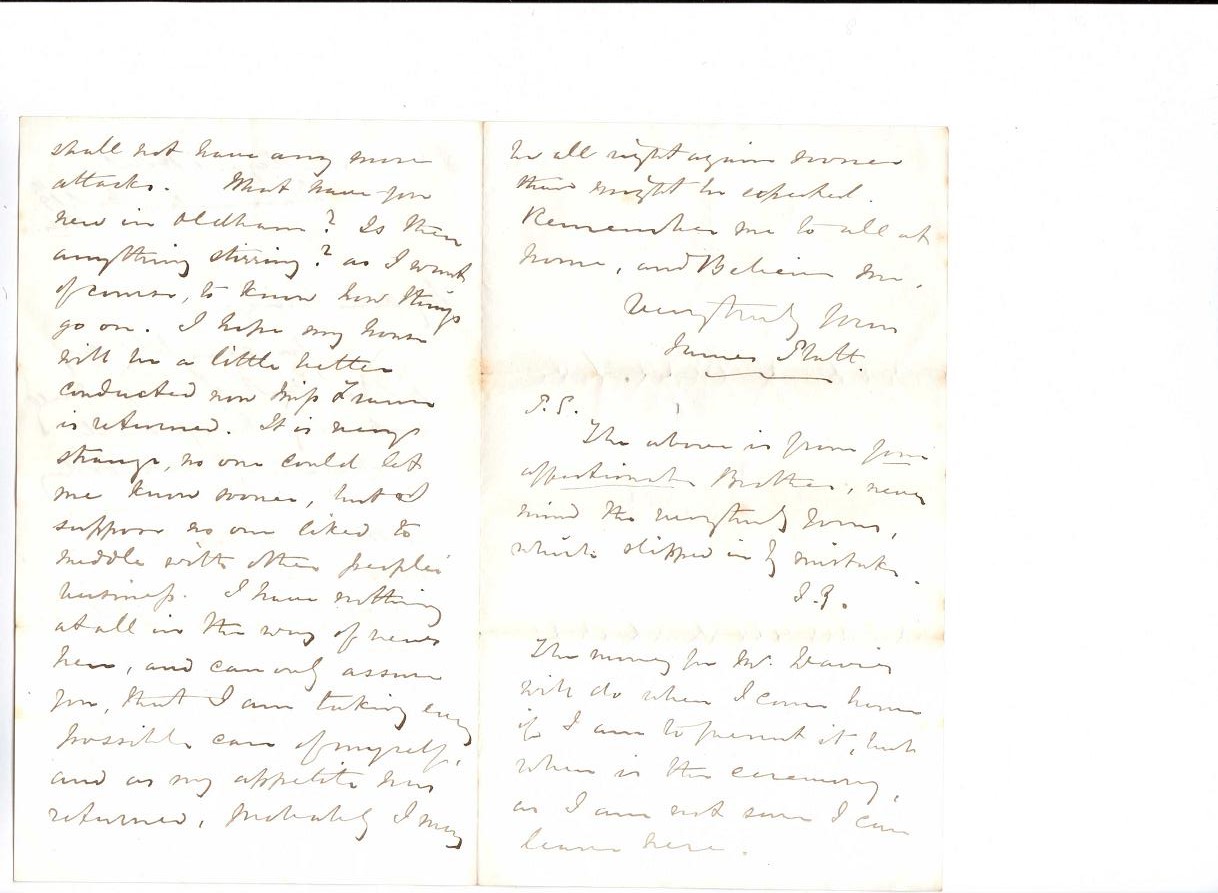 shall not have any more
attacks. What have you
new in Oldham? Is there
anything stirring? as I want
of course, to know how things
go on. I hope my house
will be a little better
conducted now Miss
is returned. It is very
strange, no one could let
me know sooner, but I
suppose no one liked to
meddle with other people's
business. I have nothing
at all in the way of news
here, and can only assure
you, that I am taking every
possible care of myself,
and as my appetite has
returned, probably I may
be all right again sooner
than might be expected.
Remember me to all at
home, and Believe me,
Very truly yours
James Platt.
P.S.
The above is from your
affectionate Brother, never
mind the very truly yours,
which slipped in by mistake.
J.P.
The money for Mr. Davies
will do when I come home
if I am to present it, but
when is the ceremony,
as I am not sure I can
leave here.